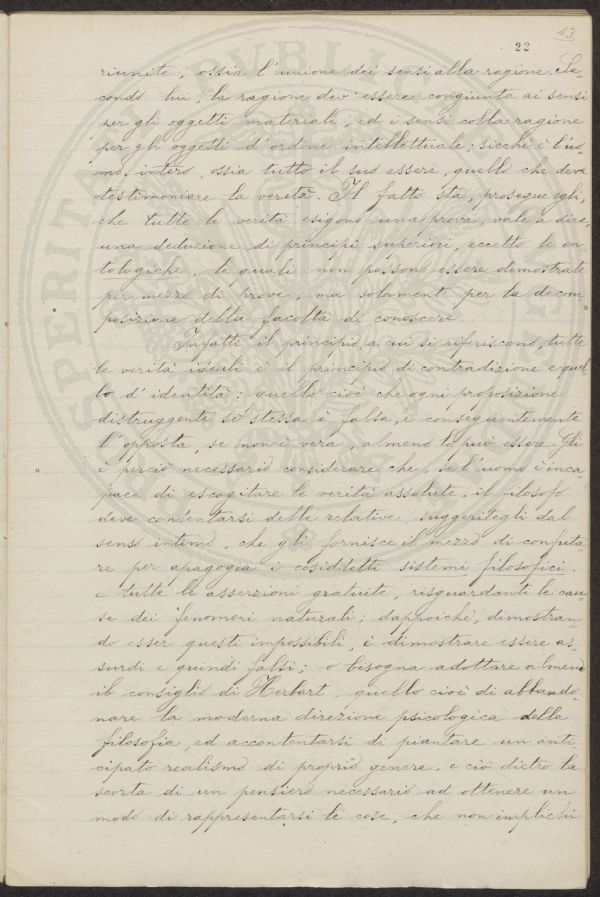 43
22
riunite, ossia l'unione dei sensi alla ragione. Se-
condo lui, la ragione dev'essere congiunta ai sensi
per gli oggetti materiali, ed i sensi colla ragione
per gli oggetti d'ordine intellettuale; sicchè è l'uo-
mo intero, ossia tutto il suo essere, quello che deve
testimoniare la verità. Il fatto sta, prosegue egli,
che tutte le verità esigono una prova, vale a dire,
una deduzione di principi superiori, eccetto le on-
tologiche, le quali non possono essere dimostrate
per mezzo di prove, ma solamente per la decom-
posizione della facoltà di conoscere.
Infatti il principio, a cui si riferiscono tutte
le verità ideali è il principio di contradizione e quel
lo d'identità; quello cioè che ogni proposizione
distruggente sè stessa è falsa, e conseguentemente
l'opposta, se non è vera, almeno lo può essere. Gli
è perciò necessario considerare che, se l'uomo è inca-
pace di escogitare le verità assolute, il filosofo
deve contentarsi delle relative, suggeritegli dal
senso intimo, che gli fornisce il mezzo di confuta-
re per apagogia i cosiddetti sistemi filosofici,
e tutte le asserzioni gratuite, risguardanti le cau-
se dei fenomeni naturali; dappoichè, dimostran-
do esser questi impossibili, è dimostrare essere as-
surdi e quindi falsi; o bisogna adottare almeno
il consiglio di Herbart, quello cioè di abbando-
nare la moderna direzione psicologica della
filosofia, ed accontentarsi di piantare un anti-
cipato realismo di proprio genere, e ciò dietro la
scorta di un pensiero necessario ad ottenere un
modo di rappresentarsi le cose, che non implichi